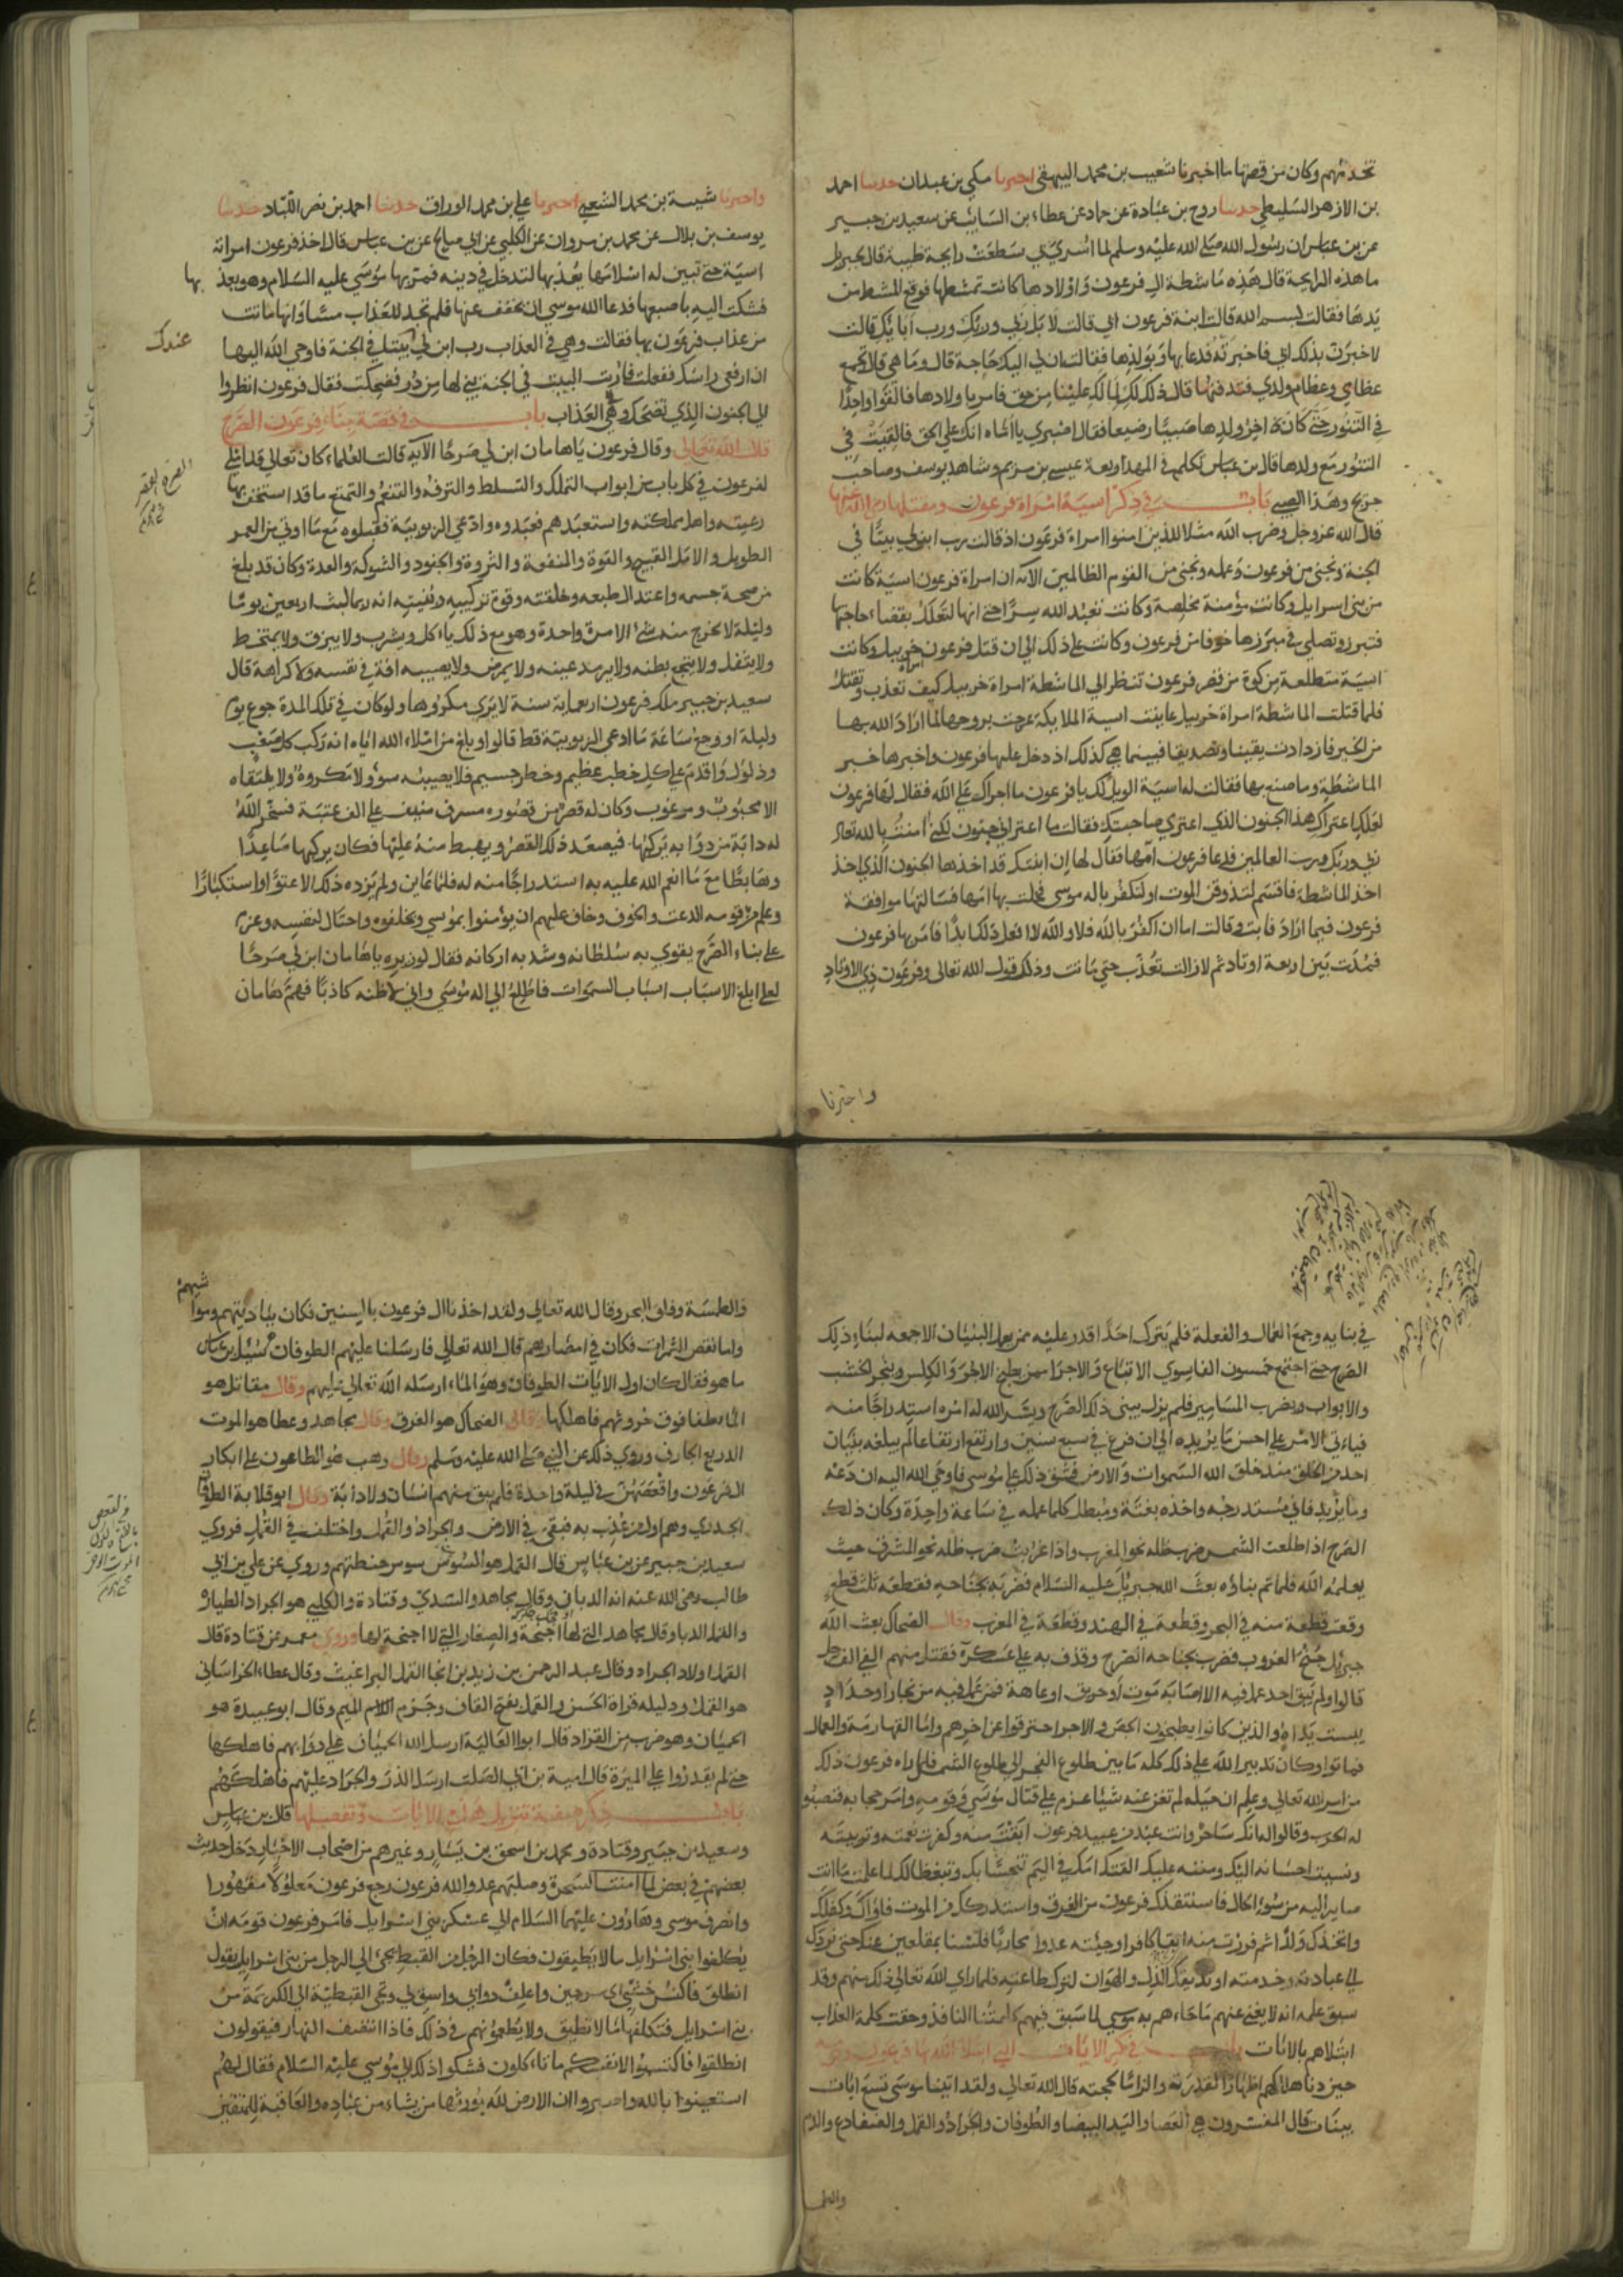 تخدمهم وكان من قصتها ما اخبرنا شعيب بن محمد البيهقي اخبرنا مكي بن عبدان حدثنا احمد
بن الازهر السليطي حدثنا روح بن عبادة عن حماد عن عطاء بن السائب عن سعيد بن جبير
عن بن عباس ان رسول الله صلى الله عليه وسلم لما اسري بي سطعت رايحة طيبة قال جبريل
ما هذه الرايحة قال هذه ماشطة ال فرعون واولادها كانت تمشطها فوقع المشط من
يدها فقالت بسم الله قالت ابنة فرعون ابي قالت لا بل ربي وربك ورب اباك قالت
لاخبرن بذلك ابي فاخبرته فدعا بها وبولدها فقالت ان لي اليك حاجة قال وما هي قال تجمع
عظامي وعظام ولدي فتدفنها قال ذلك لك لما لك علينا من حق فامر باولادها فالقوا واحدا
في التنور حتى كان اخر ولدها صبيا رضيعا فقال اصبري يا اماه انك على الحق فالقيت في
التنور مع ولدها قال بن عباس تكلم في المهد اربعة عيسى بن مريم وشاهد يوسف وصاحب
جريج وهذا الصبي باب في ذكر اسية امراة فرعون ومقتلها رضي الله عنها
قال الله عز وجل وضرب الله مثلا للذين امنوا امراة فرعون اذ قالت رب ابن لي بيتا في
الجنة ونجني من فرعون وعمله ونجني من القوم الظالمين الآية ان امراة فرعون اسية كانت
من بني اسرايل وكانت مؤمنة مخلصة وكانت تعبد الله سرا حتى انها لتعلل بقضاء حاجتها
فتبرز وتصلي في مبرزها خوفا من فرعون وكانت على ذلك الى ان قتل فرعون امراة خربيل وكانت
اسية متطلعة من كوة من قصر فرعون تنظر الي الماشطة امراة خربيل كيف تعذب وتقتل
فلما قتلت الماشطة امراة خربيل عاينت اسية الملايكة عرجت بروحها لما اراد الله بها
من الخير فازدادت يقينا وتصديقا فبينما هي كذلك اذ دخل عليها فرعون واخبرها خبر
الماشطة وما صنع بها فقالت له اسية الويل لك يا فرعون ما اجراك على الله فقال لها فرعون
لعلك اعتراك هذا الجنون الذي اعتري صاحبتك فقالت ما اعتراني جنون لكني امنت بالله تعالى
ربي وربك ورب العالمين فدعا فرعون امها فقال لها ان ابنتك قد اخذها الجنون الذي اخذ
اخذ الماشطة فاقسم لتذوقن الموت او لتكفرن باله موسى فخلت بها امها فسالتها موافقة
فرعون فيما اراد فابت وقالت اما ان اكفر بالله فلا والله لا افعل ذلك ابدا فامر بها فرعون
فمدت بين اربعة اوتاد ثم لا زالت تعذب حتى ماتت وذلك قول الله تعالى وفرعون ذي الاوتاد
واخبرنا
واخبرنا شيبة بن محمد الشعبي اخبرنا علي بن محمد الوراق حدثنا احمد بن نصر اللباد حدثنا
يوسف بن بلال عن محمد بن مروان عن الكلبي عن ابي صالح عن بن عباس قال اخذ فرعون امراته
اسية حتى تبين له اسلامها يعذبها لتدخل في دينه فمر بها موسى عليه السلام وهو يعذبها
فشكت اليه باصبعها فدعا الله موسى ان يخفف عنها فلم تجد للعذاب مسا وانها ماتت
من عذاب فرعون بها فقالت وهي في العذاب رب ابن لي عندك بيتا في الجنة فاوحي الله اليها
ان ارفعي راسك ففعلت فاريت البيت في الجنة بني لها من در فضحكت فقال فرعون انظروا
الي الجنون الذي تضحك وهي في العذاب باب في قصة بناء فرعون الصرح
قال الله تعالى وقال فرعون يا هامان ابن لي صرحا الآية قالت العلماء كان تعالى قد املى
لفرعون في كل باب من ابواب التملك والتسلط والترفه والتنعم والتمتع ما قد استخف بها
رعيته واهل مملكته واستعبدهم فعبدوه وادعى الربوبية فقبلوه مع ما اوتي من العمر
الطويل والامل الفسيح والقوة والمنعة والثروة والجنود والشوكة والعدة وكان قد بلغ
من صحة جسمه واعتدال طبعه وخلقته وقوة تركيبه وبنيته انه ربما لبث اربعين يوما
وليلة لا يخرج منه شئ الا مرة واحدة وهو مع ذلك ياكل ويشرب ولا يبزق ولا يمتخط
ولا يتفل ولا يتجع بطنه ولا يرمد عينه ولا يمرض ولا يصيبه افة في نفسه ولا كراهة قال
سعيد بن جبير ملك فرعون اربعماية سنة لا يرى مكروها ولو كان في تلك المدة جوع يوم
وليلة او وجع ساعة ما ادعى الربوبية قط قالوا وبلغ من املاء الله اياه انه ركب كل صعب
وذلول واقدم على كل خطب عظيم وخطر جسيم فلا يصيبه سوء ولا مكروه ولا يلتقاه
الا محبوب ومرغوب وكان له قصر من قصوره مسرف منيف على الف عتبة فسخر الله
له دابة من دوابه يركبها فيصعد ذلك القصر ويهبط منه عليها فكان يركبها صاعدا
وهابطا مع ما انعم الله عليه به استدراجا منه له فلما عاين ولم يزده ذلك الا عتوا واستكبارا
وعلم من قومه الدعت والخوف وخاف عليهم ان يؤمنوا بموسى ويخلفوه واحتال لنفسه وعزم
على بناء الصرح يقوي به سلطانه وشد به اركانه فقال لوزيره ياهامان ابن لي صرحا
لعلي ابلغ الاسباب اسباب السموات فاطلع الى اله موسى واني لاظنه كاذبا فهم هامان
في بنايه وجمع العمال والفعلة فلم يترك احدا اقدر عليه ممن يعمل البنيان الا جمعه لبناء ذلك
الصرح حتى اجتمع خمسون الفا سوى الاتباع والاجراء ممن يطبخ الاجر والكلس وينجر الخشب
والابواب ويضرب المسامير فلم يزل يبني ذلك الصرح ويسر الله له امره استدراجا منه
فياتي الامر على احسن ما يريده الى ان فرغ في سبع سنين وارتفع ارتفاعا لم يبلغه بنيان
احد من الخلق منذ خلق الله السموات والارض فشق ذلك على موسى فاوحى الله اليه ان دعه
وما يريد فاني مستدرجه واخذه بغتة ومبطل كلما عمله في ساعة واحدة وكان ذلك
الصرح اذا طلعت الشمس ضرب ظله نحو المغرب واذا غربت ضرب ظله نحو المشرق حيث
يعلمه الله فلما تم بناؤه بعث الله جبريل عليه السلام فضربه بجناحيه فقطعه ثلث قطع
وقعت قطعة منه في البحر وقطعة في الهند وقطعة في المغرب وقال الضحاك بعث الله
جبريل جنح الغروب فضرب بجناحه الصرح وقذف به على عسكره فقتل منهم الفي الف رجل
قالوا ولم يبق احد عمل فيه الا اصابه موت او حريق او عاهة فمن عمل فيه من نجار او حداد
يبست يداه والذين كانوا يطبخون الجص والاجر احترقوا عن اخرهم واما القهارمة والعمال
فماتوا وكان تدبير الله على ذلك كله ما بين طلوع الفجر الى طلوع الشمس فلما راه فرعون ذلك
من امر الله تعالى وعلم ان حيله لم تغن عنه شيئا عزم على قتال موسى وقومه وامر حجابه فنصبوا
له الحرب وقالوا له انك ساحر وانت عبد من عبيد فرعون ابقت منه وكفرت نعمته وتربيته
ونسيت احسانه اليك ومننه عليك القتك امك في اليم تنجسا بك وتبغظا لك لما علمت ما انت
صاير اليه من سوء الحال فاستنقذك فرعون من الغرق واستدركك من الموت فاواك وكفلك
واتخذك ولدا ثم فررت منه ابقا كافرا وجئته عدوا محاربا فلسنا بمقلعين عنك حتى نردك
الى عبادته وخدمته او نذيقك الذل والهوان لترك طاعته فلما راى الله تعالى ذلك منهم وقد
سبق علمه انه لا يغني عنهم ما جاءهم به موسى لما سبق فيهم كلمتنا النافذ وحقت كلمة العذاب
ابتلاهم بالايات باب في ذكر الايات التي ابتلا الله بها فرعون وقومه
حين دنا هلاكهم اظهارا لقدرته والزاما لحجته قال الله تعالى ولقد اتينا موسى تسع ايات
بينات قال المفسرون هي العصا واليد البيضا والطوفان والجراد والقمل والضفادع والدم
والطمـ
والطمسة وفلق البحر وقال الله تعالى ولقد اخذنا ال فرعون بالسنين فكان بباديتهم ومواشيهم
واما نقص الثمرات فكان في امصارهم قال الله تعالى فارسلنا عليهم الطوفان سئل بن عباس
ما هو فقال كان اول الايات الطوفان وهو الماء ارسله الله تعالى عليهم وقال مقاتل هو
الماء طغا فوق حروثهم فاهلكها وقال الضحاك هو الغرق وقال مجاهد وعطا هو الموت
الذريع الجارف وروي ذلك عن النبي صلى الله عليه وسلم وقال وهب هو الطاعون على ابكار
ال فرعون واقعصهن في ليلة واحدة فلم يبق منهم انسان ولا دابة وقال ابو قلابة الطوفان
الجدري وهم اول من عذب به فبقي في الارض والجراد والقمل واختلف في القمل فروي
سعيد بن جبير عن بن عباس قال القمل هو السوس سوس حنطتهم وروي عن علي بن ابي
طالب رضي الله عنه انه الدبا وقال مجاهد والسدي وقتادة والكلبي هو الجراد الطيارة
والقمل الدبا وقال مجاهد التي لها اجنحة والصغار التي لا اجنحة لها وروى معمر عن قتادة قال
القمل اولاد الجراد وقال عبد الرحمن بن زيد بن انها القمل البراغيث وقال عطاء الخراساني
هو القمل ودليله قراة الحسن والقمل بفتح القاف وجزم الميم وقال ابو عبيدة هو
الحمنان وهو ضرب من القراد قال ابوا العالية ارسل الله الحمنان على دوابهم فاهلكها
حتى لم يقدروا على الميرة قال امية بن ابي الصلت ارسل الذر والجراد عليهم فاهلكهم
باب ذكر صفة تنزيل هذه الايات وتفصيلها قال بن عباس
وسعيد بن جبير وقتادة ومحمد بن اسحق بن يسار وغيرهم من اصحاب الاخبار دخل حديث
بعضهم في بعض لما امنت السحرة وصلبهم عدو الله فرعون رجع فرعون مغلولا مقهورا
وانصرف موسى وهارون عليهما السلام الى عسكر بني اسرايل فامر فرعون قومه ان
يكلفوا بني اسرايل ما لا يطيقون فكان الرجل من القبط يجئ الى الرجل من بني اسرايل يقول
انطلق فاكنس حشي سرجين واعلف دوابي واسق لي وتجئ القبطية الى الكريمة من
بني اسرايل فتكلفها ما لا تطيق ولا يطعمونهم في ذلك فاذا انتصف النهار فيقولون
انطلقوا فاكتسبوا لانفسكم ما تاكلون فشكوا ذلك الى موسى عليه السلام فقال لهم
استعينوا بالله واصبروا ان الارض لله يورثها من يشاء من عباده والعاقبة للمتقين